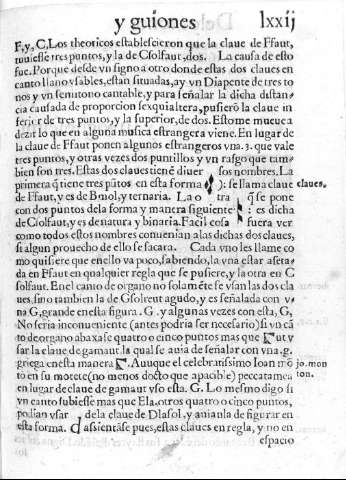 y guiones lxxij
F, y, C, Los theoricos establescieron que la claue de Ffaut,
tuuiesse tres puntos, y la de Csolfaut, dos. La causa de esto
fue. Porque desde vn signo a otro donde estas dos claues en
canto llano vsables, estan situadas, ay vn Diapente de tres to
nos y vn semitono cantable, y para señalar la dicha distan
cia causada de proporcion sexquialtera, pusierõ la claue in
ferior de tres puntos, y la superior, de dos. Esto me mueue a
dezir lo que en alguna musica estrangera viene. En lugar de
la claue de Ffaut ponen algunos estrangeros vna .3. que vale
tres puntos, y otras vezes dos puntillos y vn rasgo que tam
bien son tres. Estas dos claues tienẽ diuer sos nombres. La
primera q̃ tiene tres pũtos en esta forma ): se llama claue claues.
de Ffaut, y es de Bmol, y ternaria. La o tra q̃ se pone
con dos puntos de la forma y manera siguiente es dicha
de Csolfaut, y es denatura y binaria. Facil cosa fuera ver
como todos estos nombres conuenian a las dichas dos claues,
si algun prouecho de ello se sacara. Cada vno les llame co
mo quisiere que en ello va poco, sabiendo, la vna estar aseta-
da en Ffaut en qualquier regla que se pusiere, y la otra en C
solfaut. En el canto de organo no solamẽte se vsan las dos cla
ues, sino tambien la de Gsolreut agudo, y es señalada con v
na G, grande en esta figura . G . y algunas vezes con esta, G,
No seria inconueniente (antes podria ser necesario) si vn cã
to de organo abaxasse quatro o cinco puntos mas que ut v
sar la claue de gamaut, la qual se auia de señalar con vna .g.
griega en esta manera . Aunque el celebratissimo Ioan mõ jo. mon
tõ en su motete (no menos docto que apacible) peccatamea ton.
en lugar de claue de gamaut vso esta . G . Lo mesmo digo si
vn canto subiesse mas que Ela, otros quatro o cinco puntos,
podian vsar de la claue de Dlasol, y auianla de figurar en
esta forma. d assientãse pues, estas claues en regla, y no en
espacio